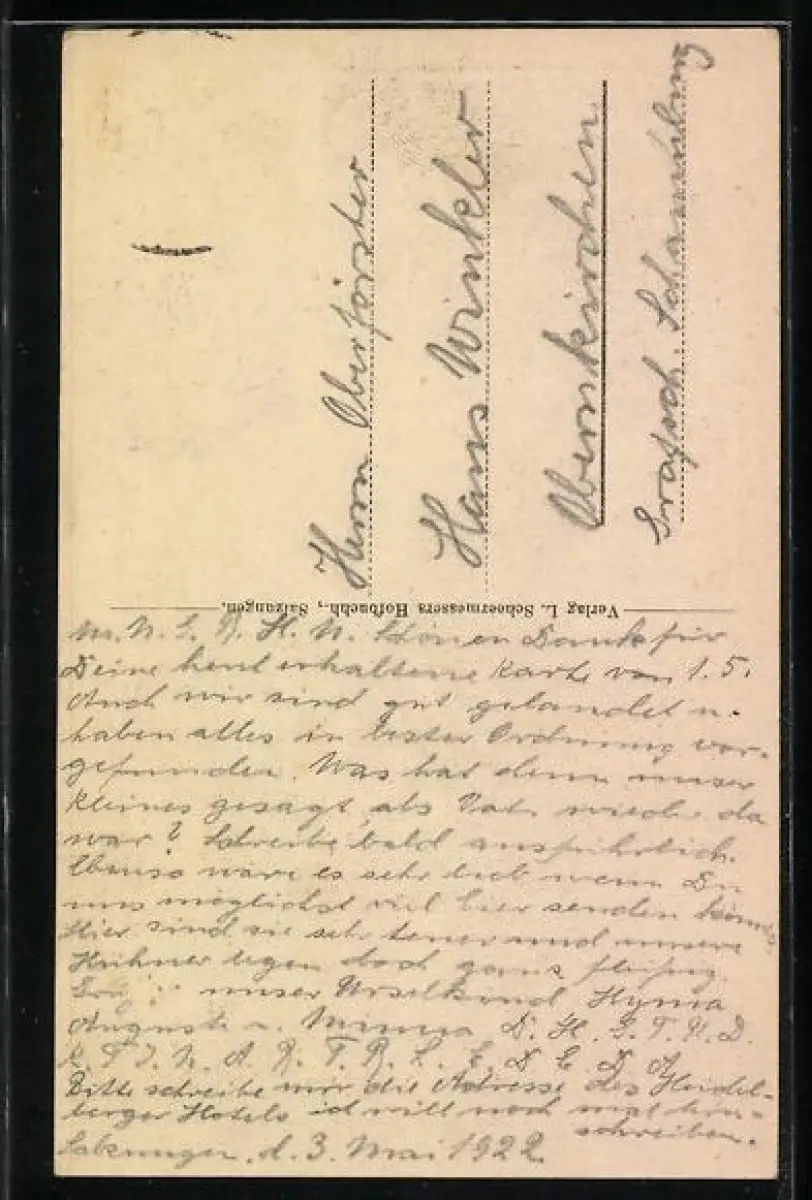 Herrn Oberförster
Hans Winkler
Obernkirchen
Grafsch. Schaumburg
Verlag L. Scheermessers Hofbuchh., Salzungen.
M. N. G. R. H. N. Schönen Dank für
Deine heut erhaltene Karte von 1.5.
Auch wir sind gut gelandet u.
haben alles in bester Ordnung vor-
gefunden. Was hat denn unser
kleines gesagt, als Vati wieder da
war? Schreibe bald ausführlich.
Ebenso wäre es sehr lieb wenn Du
uns möglichst viel Eier senden
Hier sind sie sehr teuer und unsere
Hühner legen doch ganz fleißig.
unser Urselkind
August u. Minna D. H. G. T. D.
K. T. J. N. A. R. T. R. L. E. D. E. D. A.
Bitte schreibe mir die Adresse des Heidel-
berger Hotels ich will noch mal hin-
schreiben.
Salzungen, d. 3. Mai 1922.